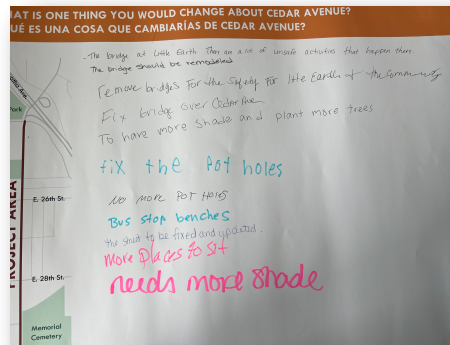 HAT IS ONE THING YOU WOULD CHANGE ABOUT CEDAR AVENUE?
UÉ ES UNA COSA QUE CAMBIARÍAS DE CEDAR AVENUE?
- The bridge at Little Earth there are a lot of unsafe activities that happen there.
The bridge should be remodeled
remove bridges For the Safety For little Earth & the community
Fix bridge over Cedar Ave
To have more shade and plant more trees
fix the Pot holes
NO MORE POT HOLES
Bus stop benches
the street to be fixed and updated.
More places to sit
needs more shade
Park
PROJECT AREA
E. 26th St.
E. 28th St.
Memorial
Cemetery